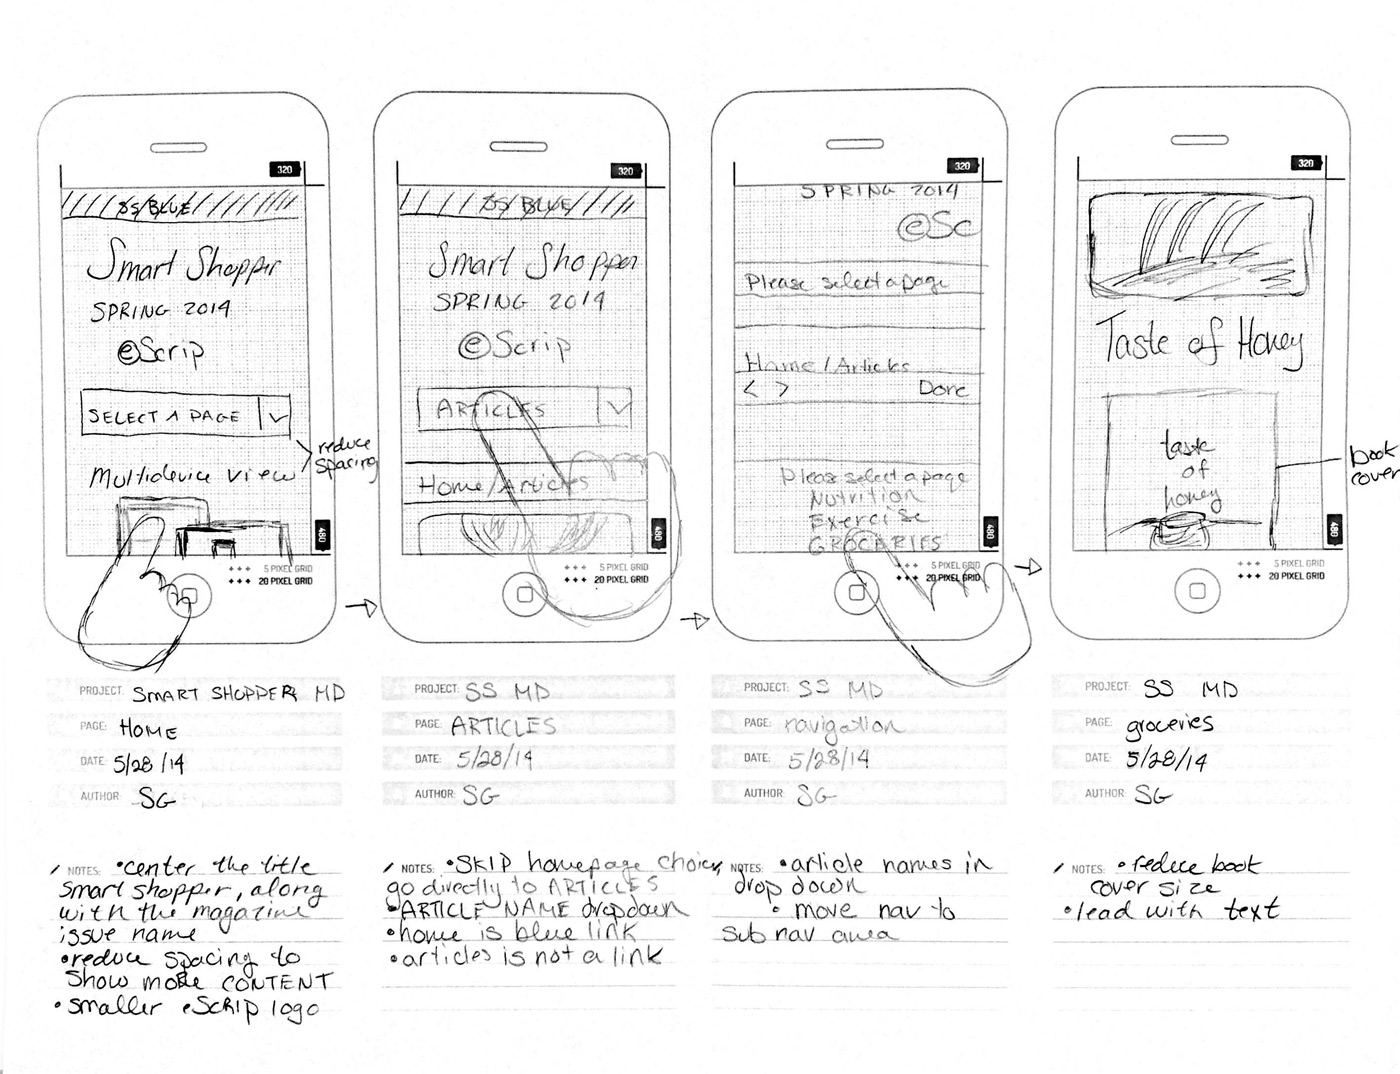 320
SS/BLUE
Smart Shopper
SPRING 2014
eScrip
SELECT A PAGE
reduce
spacing
Multidevice view
480
5 PIXEL GRID
20 PIXEL GRID
PROJECT: SMART SHOPPER MD
PAGE: HOME
DATE: 5/28/14
AUTHOR: SG
NOTES: •center the title
smart shopper, along
with the magazine
issue name
•reduce spacing to
show more CONTENT
•smaller eScrip logo
320
SS/BLUE
Smart Shopper
SPRING 2014
eScrip
ARTICLES
Home/Articles
480
5 PIXEL GRID
20 PIXEL GRID
PROJECT: SS MD
PAGE: ARTICLES
DATE: 5/28/14
AUTHOR: SG
NOTES: •SKIP homepage choice,
go directly to ARTICLES
•ARTICLE NAME dropdown
•home is blue link
•articles is not a link
320
SPRING 2014
eSc
Please select a page
Home/Articles
< > Done
Please select a page
Nutrition
Exercise
GROCARIES
480
5 PIXEL GRID
20 PIXEL GRID
PROJECT: SS MD
PAGE: navigation
DATE: 5/28/14
AUTHOR: SG
NOTES: •article names in
drop down
•move nav to
sub nav area
320
Taste of Honey
taste
of
honey
book
cover
480
5 PIXEL GRID
20 PIXEL GRID
PROJECT: SS MD
PAGE: groceries
DATE: 5/28/14
AUTHOR: SG
NOTES: •reduce book
cover size
•lead with text